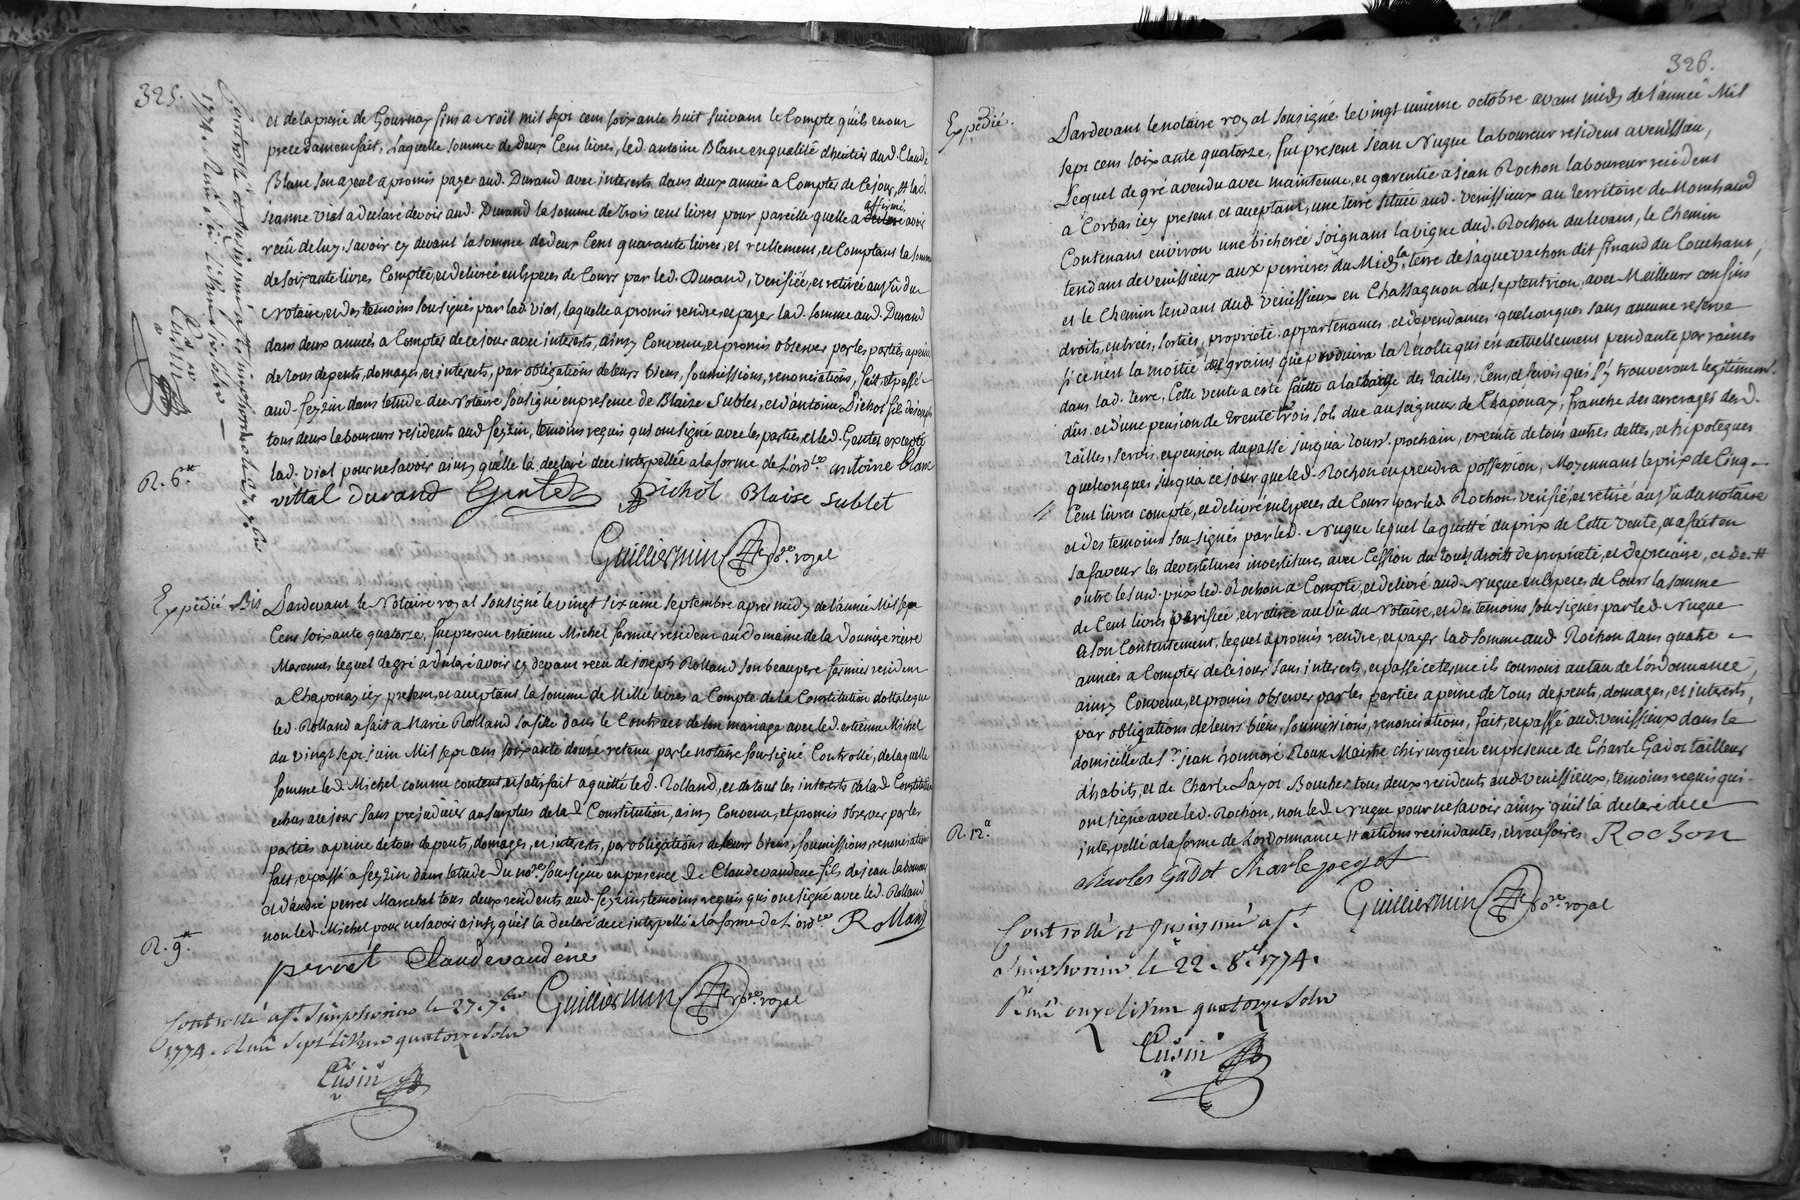 325.
et de la prerie de Gournay fins a Noël mil sept cens soixante huit suivant le Compte quéls en ont
precedament fait, Laquelle somme de deux Cens livres, led. antoine Blanc en qualité dheritier dud. Claude
Blanc son ayeul a promis payer aud. Durand avec interests dans deux années a Compter de Cejour, et lad.
jeanne vial a declaré devoir aud. Durand la somme de trois cens livres pour pareille quelle a affirmé avoir
reçû de luy, savoir cy devant la somme de deux Cens quarante livres, et reellement, et Comptant la somme
de soixante livres Comptée, et delivrée en Especes de Cours par led. Durand, verifiée, et retirée au vû du
Notaire, et des temoins soussignés par lad. vial, laquelle a promis rendre, et payer lad. somme aud. Durand
dans deux années à Compter de ce jour avec interests, ainsy Convenu, et promis observer par les parties, a peine
de tous depents, domages, et interests, par obligations de leurs biens, soumissions, renonciations, fait, et passé
aud. feyzin dans letude du Notaire soussigné en presence de Blaize Sublet, et d'antoine Pichot fils de joseph
tous deux laboureurs residents aud. feyzin, temoins requis qui ont signé avec les parties, et led. Gentet excepté
lad. vial pour ne savoir ainsy quelle la declaré de ce interpellée a la forme de L'ord.ce antoine blanc
R. 6.
vittal durand Gentet pichot Blaise sublet
Guilliermin no.re royal
Controllé et insinué a st. simphorien le 7bre
1774. Reçû
Cusin
Expedié Bis
Pardevant le Notaire royal soussigné le vingt sixieme septembre apres midy de l'année Mil sept
Cens soixante quatorze, fut present estienne Michel fermier resident au domaine de la Donniere riere
Marennes lequel de gré a declaré avoir cy devant reçu de joseph Rolland son beaupere fermier resident
a Chaponay icy present, et acceptant la somme de Mille livres a Compte de la Constitution dottale que
led. Rolland a fait a Marie Rolland sa fille dans le Contract de son mariage avec led. estienne Michel
du vingt sept juin Mil sept cens soixante douze retenu par le notaire soussigné Controllé, de laquelle
somme led. Michel comme content, et satisfait a quitté led. Rolland, et de tous les interests de lad. Constitution
echus a ce jour sans prejudicier au surplus de lad. Constitution, ainsy Convenu, et promis observer par les
parties a peine de tous depents, domages, et interests, par obligations de leurs biens, soumissions, renonciations
fait, et passé a feyzin dans letude du no.re soussigné en presence de Claude vaudene fils de jean laboureur
et d'andré perret Marechet tous deux residents aud. feyzin, temoins requis qui ont signé avec led. Rolland
non led. Michel pour ne savoir ainsy quil la declaré de ce interpellé a la forme de L'ord.ce Rolland
R. 9.
perret Claude vaudéne
Guilliermin no.re royal
Controllé a st. simphorien le 27. 7bre
1774. Reçû sept livres quatorze sols
Cusin
326.
Expedié.
Pardevant le notaire royal soussigné le vingt unieme octobre avant midy de l'année Mil
sept cens soixante quatorze, fut present jean Nugue laboureur resident a venissieu,
Lequel de gré a vendu avec maintenue, et garentie a jean Rochon laboureur resident
a Corbas icy present et acceptant, une terre située aud. venissieux au territoire de Monchaud
Contenant environ une bicherée joignant la vigne dud. Rochon du levant, le Chemin
tendant de venissieux aux perrieres du Midy, la terre de jaque vachon dit finand du Couchant,
et le Chemin tendant dud. venissieux en Chassagnon du septentrion, avec Meilleurs confins
droits, entrées, sorties, proprieté, appartenances, et dependances quelconques sans aucune reserve
si ce nest la moitié des grains que produira la recolte qui est actuellement pendante par racines
dans lad. terre, Cette vente a esté faitte a la charge des tailles, Cens, et servis qui s'y trouveront legitiment
dûs, et d'une pension de trente trois sols due au seigneur de Chaponay, franche des arrerages desd.
tailles, servis, et pension du passé jusqu'a prochain, exempte de tous autres dettes, et hipoteques
quelconques jusqu'a ce jour que led. Rochon en prendra possession, Moyennant le prix de Cinq
Cent livres compté, et delivré en Especes de Cours par led. Rochon verifié, et retiré au vû du notaire
et des temoins soussignés par led. Nugue lequel la quitté du prix de Cette vente, et a fait en
sa faveur les devestitures investitures avec Cession du tous droits de propriété, et de precaire, et de #
outre le sud. prix led. Rochon a Compté, et delivré aud. Nugue en Especes de Cours la somme
de Cent livres verifiée, et retirée au vû du Notaire, et des temoins soussignés par led. Nugue
a son Contentement, lequel a promis rendre, et payer lad. somme aud. Rochon dans quatre
années a Compter de ce jour sans interests, et passé ce terme ils courront au taux de l'ordonnance,
ainsy Convenu, et promis observer par les parties a peine de tous depents, domages, et interests,
par obligations de leurs biens, soumissions, renonciations, fait, et passé aud. venissieux dans le
domicille de s.r jean honnoré Roux Maitre chirurgien en presence de Charle Gadot tailleur
d'habits, et de Charle payot Boucher tous deux residents aud. venissieux, temoins requis qui
ont signé avec led. Rochon, non led. Nugue pour ne savoir ainsy quil la declaré de ce
interpellé a la forme de L'ordonnance # actions rescindantes, et rescisoires Rochon
R. 12.
charles Gadot Charle payot
Guilliermin no.re royal
Controllé et insinué a st.
simphorien le 22. 8bre 1774.
Reçû onze livres quatorze sols
Cusin